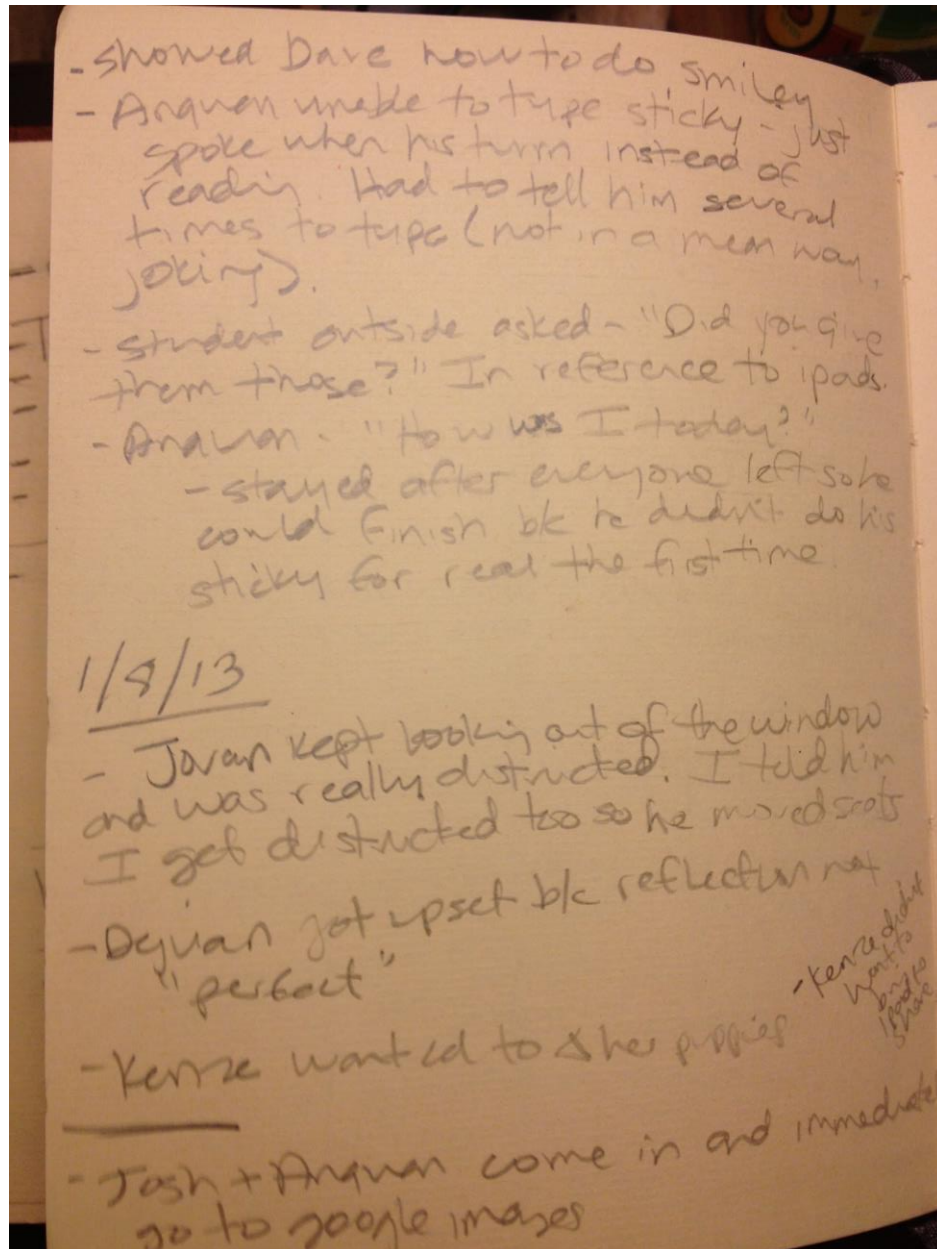 - showed Dave how to do smiley
- Anquan unable to type sticky - just
spoke when his turn instead of
readin. Had to tell him several
times to type (not in a mean way,
joking).
- student outside asked - "Did you give
them those?" In reference to ipads.
- Anquan - "How was I today?"
- stayed after everyone left so he
could finish b/c he didn't do his
sticky for real the first time.
1/8/13
- Jovan kept looking out of the window
and was really distracted. I told him
I get distracted too so he moved seats
- Dejuan got upset b/c reflection not
"perfect"
- Kenze wanted to her puppies
- Kenze didn't
want to
iPad to
share
- Josh + Anquan come in and immediatel
go to google images